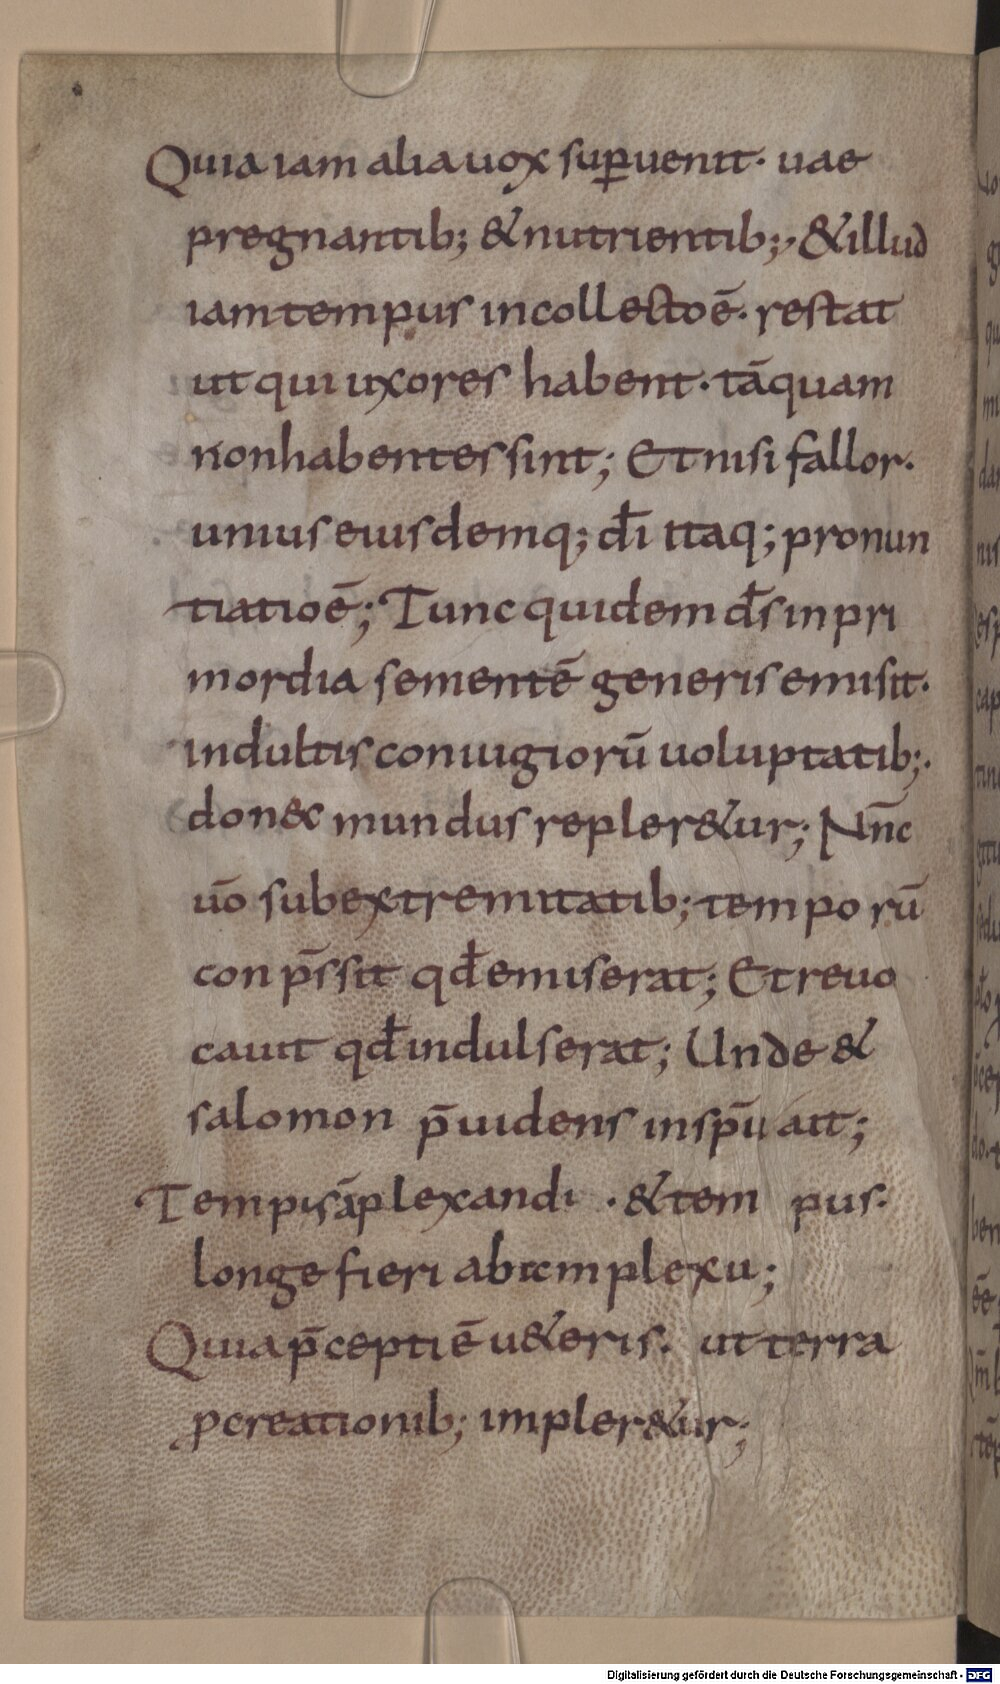 Quia iam alia uox suꝑuenit· uae
pregnantib; & nutrientib;, & illud
iam tempus in collectoē· restat
ut qui uxores habent· tāquam
non habentes sint; Et nisi fallor·
unius eiusdemq; dī itaq; pronun
tiatioē; Tunc quidem ds̄ in pri
mordia sementē generis emisit·
indultis coniugiorū uoluptatib;·
don&c mundus repler&ur; Nūc
uō sub extremitatib; temporū
conp̄ssit qđ emiserat; Et reuo
cauit qđ indulserat; Unde &
salomon p̄uidens in sp̄u ait;
Tempis āplexandi · & tem pus·
longe fieri ab complexu;
Quia p̄ceptiē u&eris· ut terra
ꝓcreationib; impler&ur;
Digitalisierung gefördert durch die Deutsche Forschungsgemeinschaft - DFG